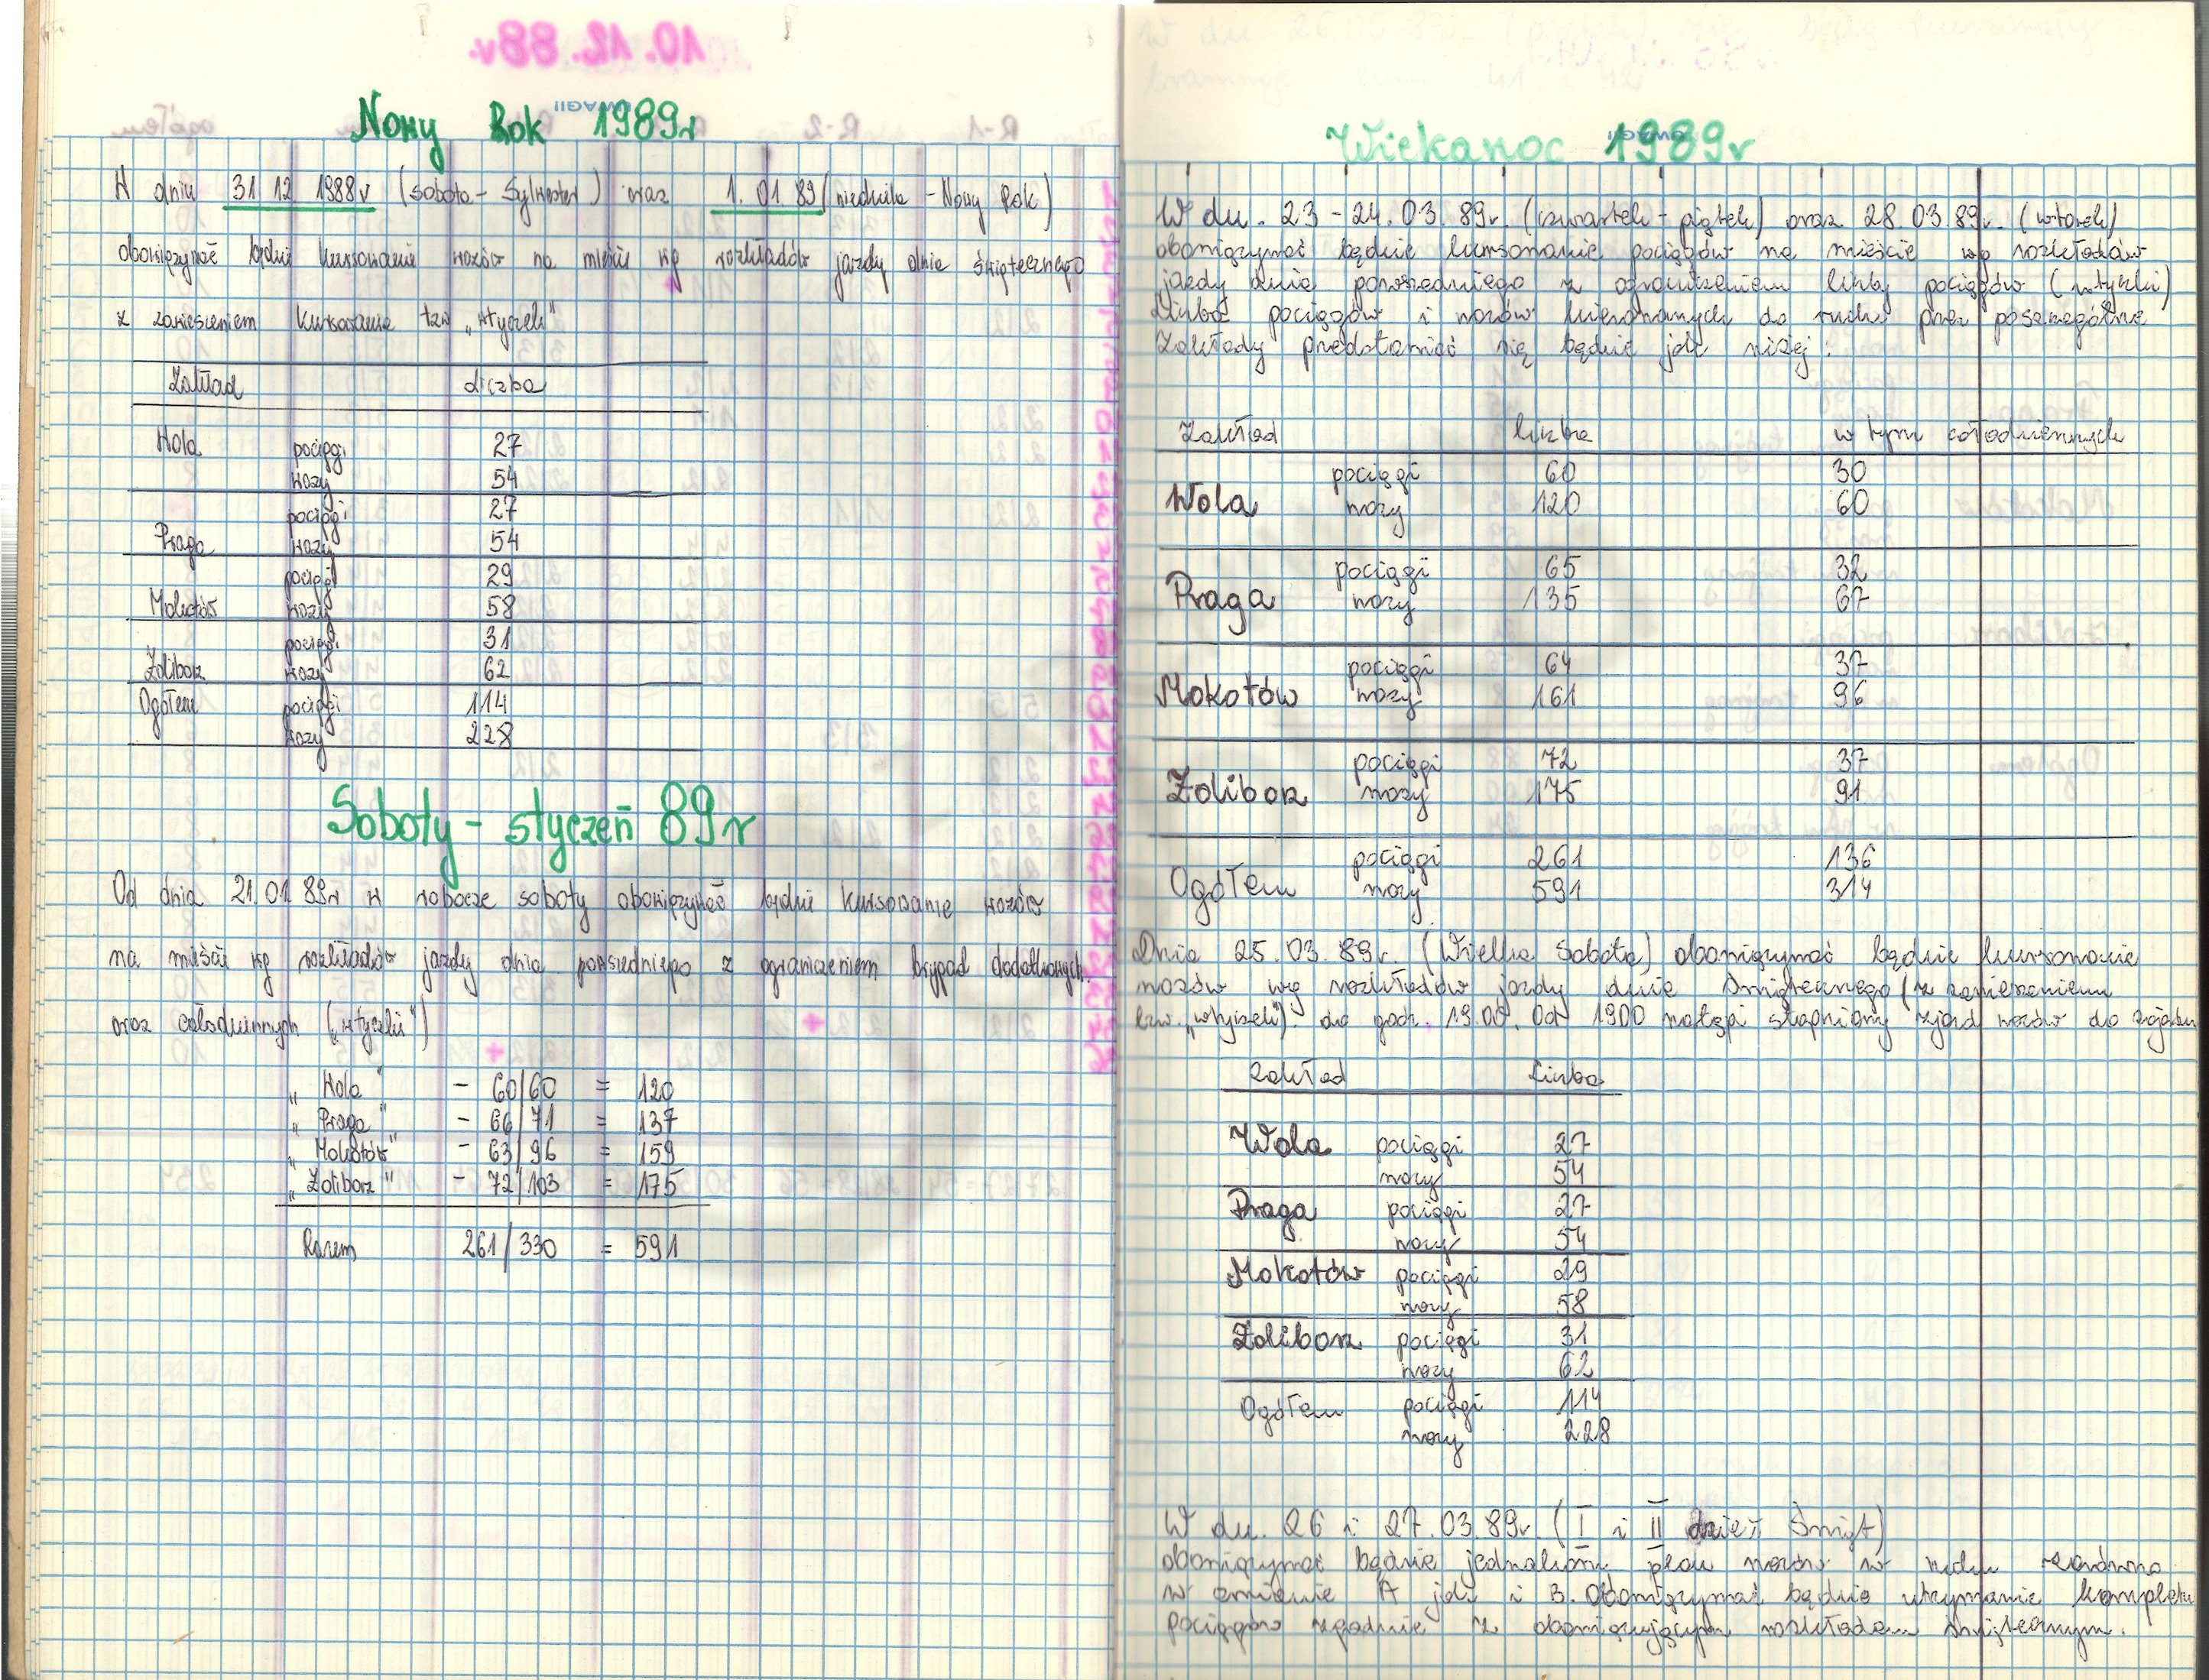 Nowy Rok 1989r
W dniu 31 12 1988r (sobota - Sylwester) oraz 1. 01 89 (niedziela - Nowy Rok)
obowiązywać będzie kursowanie wozów na mieście wg rozkładów jazdy dnia świątecznego
z zawieszeniem kursowania tzw „wtyczek"
Zakład liczba
Wola pociągi 27
wozy 54
pociągi 27
Praga wozy 54
pociągi 29
Mokotów wozy 58
pociągi 31
Żoliborz wozy 62
Ogółem pociągi 114
wozy 228
Soboty - styczeń 89r
Od dnia 21.01 89r w robocze soboty obowiązywać będzie kursowanie wozów
na mieście wg rozkładów jazdy dnia powszedniego z ograniczeniem brygad dodatkowych
oraz całodziennych („wtyczki")
„Wola" - 60/60 = 120
„Praga" - 66/71 = 137
„Mokotów" - 63/96 = 159
„Żoliborz" - 72/103 = 175
Razem 261/330 = 591
Wielkanoc 1989r
W dn. 23 - 24. 03. 89r. (czwartek - piątek) oraz 28. 03. 89r. (wtorek)
obowiązywać będzie kursowanie pociągów na mieście wg rozkładów
jazdy dnia powszedniego z ograniczeniem liczby pociągów (wtyczki)
Liczba pociągów i wozów kierowanych do ruchu przez poszczególne
Zakłady przedstawiać się będzie jak niżej:
Zakład liczba w tym całodziennych
pociągi 60 30
Wola wozy 120 60
pociągi 65 32
Praga wozy 135 67
pociągi 64 37
Mokotów wozy 161 96
pociągi 72 37
Żoliborz wozy 175 91
pociągi 261 136
Ogółem wozy 591 314
Dnia 25. 03. 89r. (Wielka Sobota) obowiązywać będzie kursowanie
wozów wg rozkładów jazdy dnia świątecznego (z zawieszeniem
tzw. „wtyczek") do godz. 19.00. Od 1900 nastąpi stopniowy zjazd wozów do zajezdni
Zakład Liczba
Wola pociągi 27
wozy 54
Praga pociągi 27
wozy 54
Mokotów pociągi 29
wozy 58
Żoliborz pociągi 31
wozy 62
Ogółem pociągi 114
wozy 228
W dn. 26 i 27. 03. 89r. (I i II dzień Świąt)
obowiązywać będzie jednakowy plan wozów w ruchu zarówno
w zmianie A jak i B. Obowiązywać będzie utrzymanie kompletu
pociągów zgodnie z obowiązującym rozkładem świątecznym.